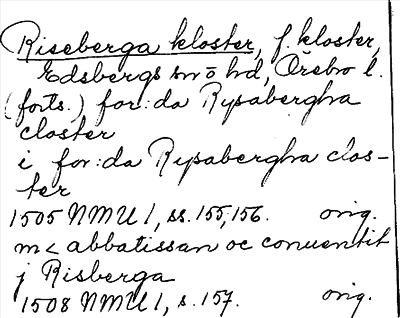 Riseberga kloster, f. kloster,
Edsbergs sn o hd, Örebro l.
(forts.) for:da Rysabergha
closter
i for:da Rysabergha clos-
ter
1505 NMU 1, ss. 155, 156. orig.
m< abbatissan oc conuentit
j Risberga
1508 NMU 1, s. 157. orig.